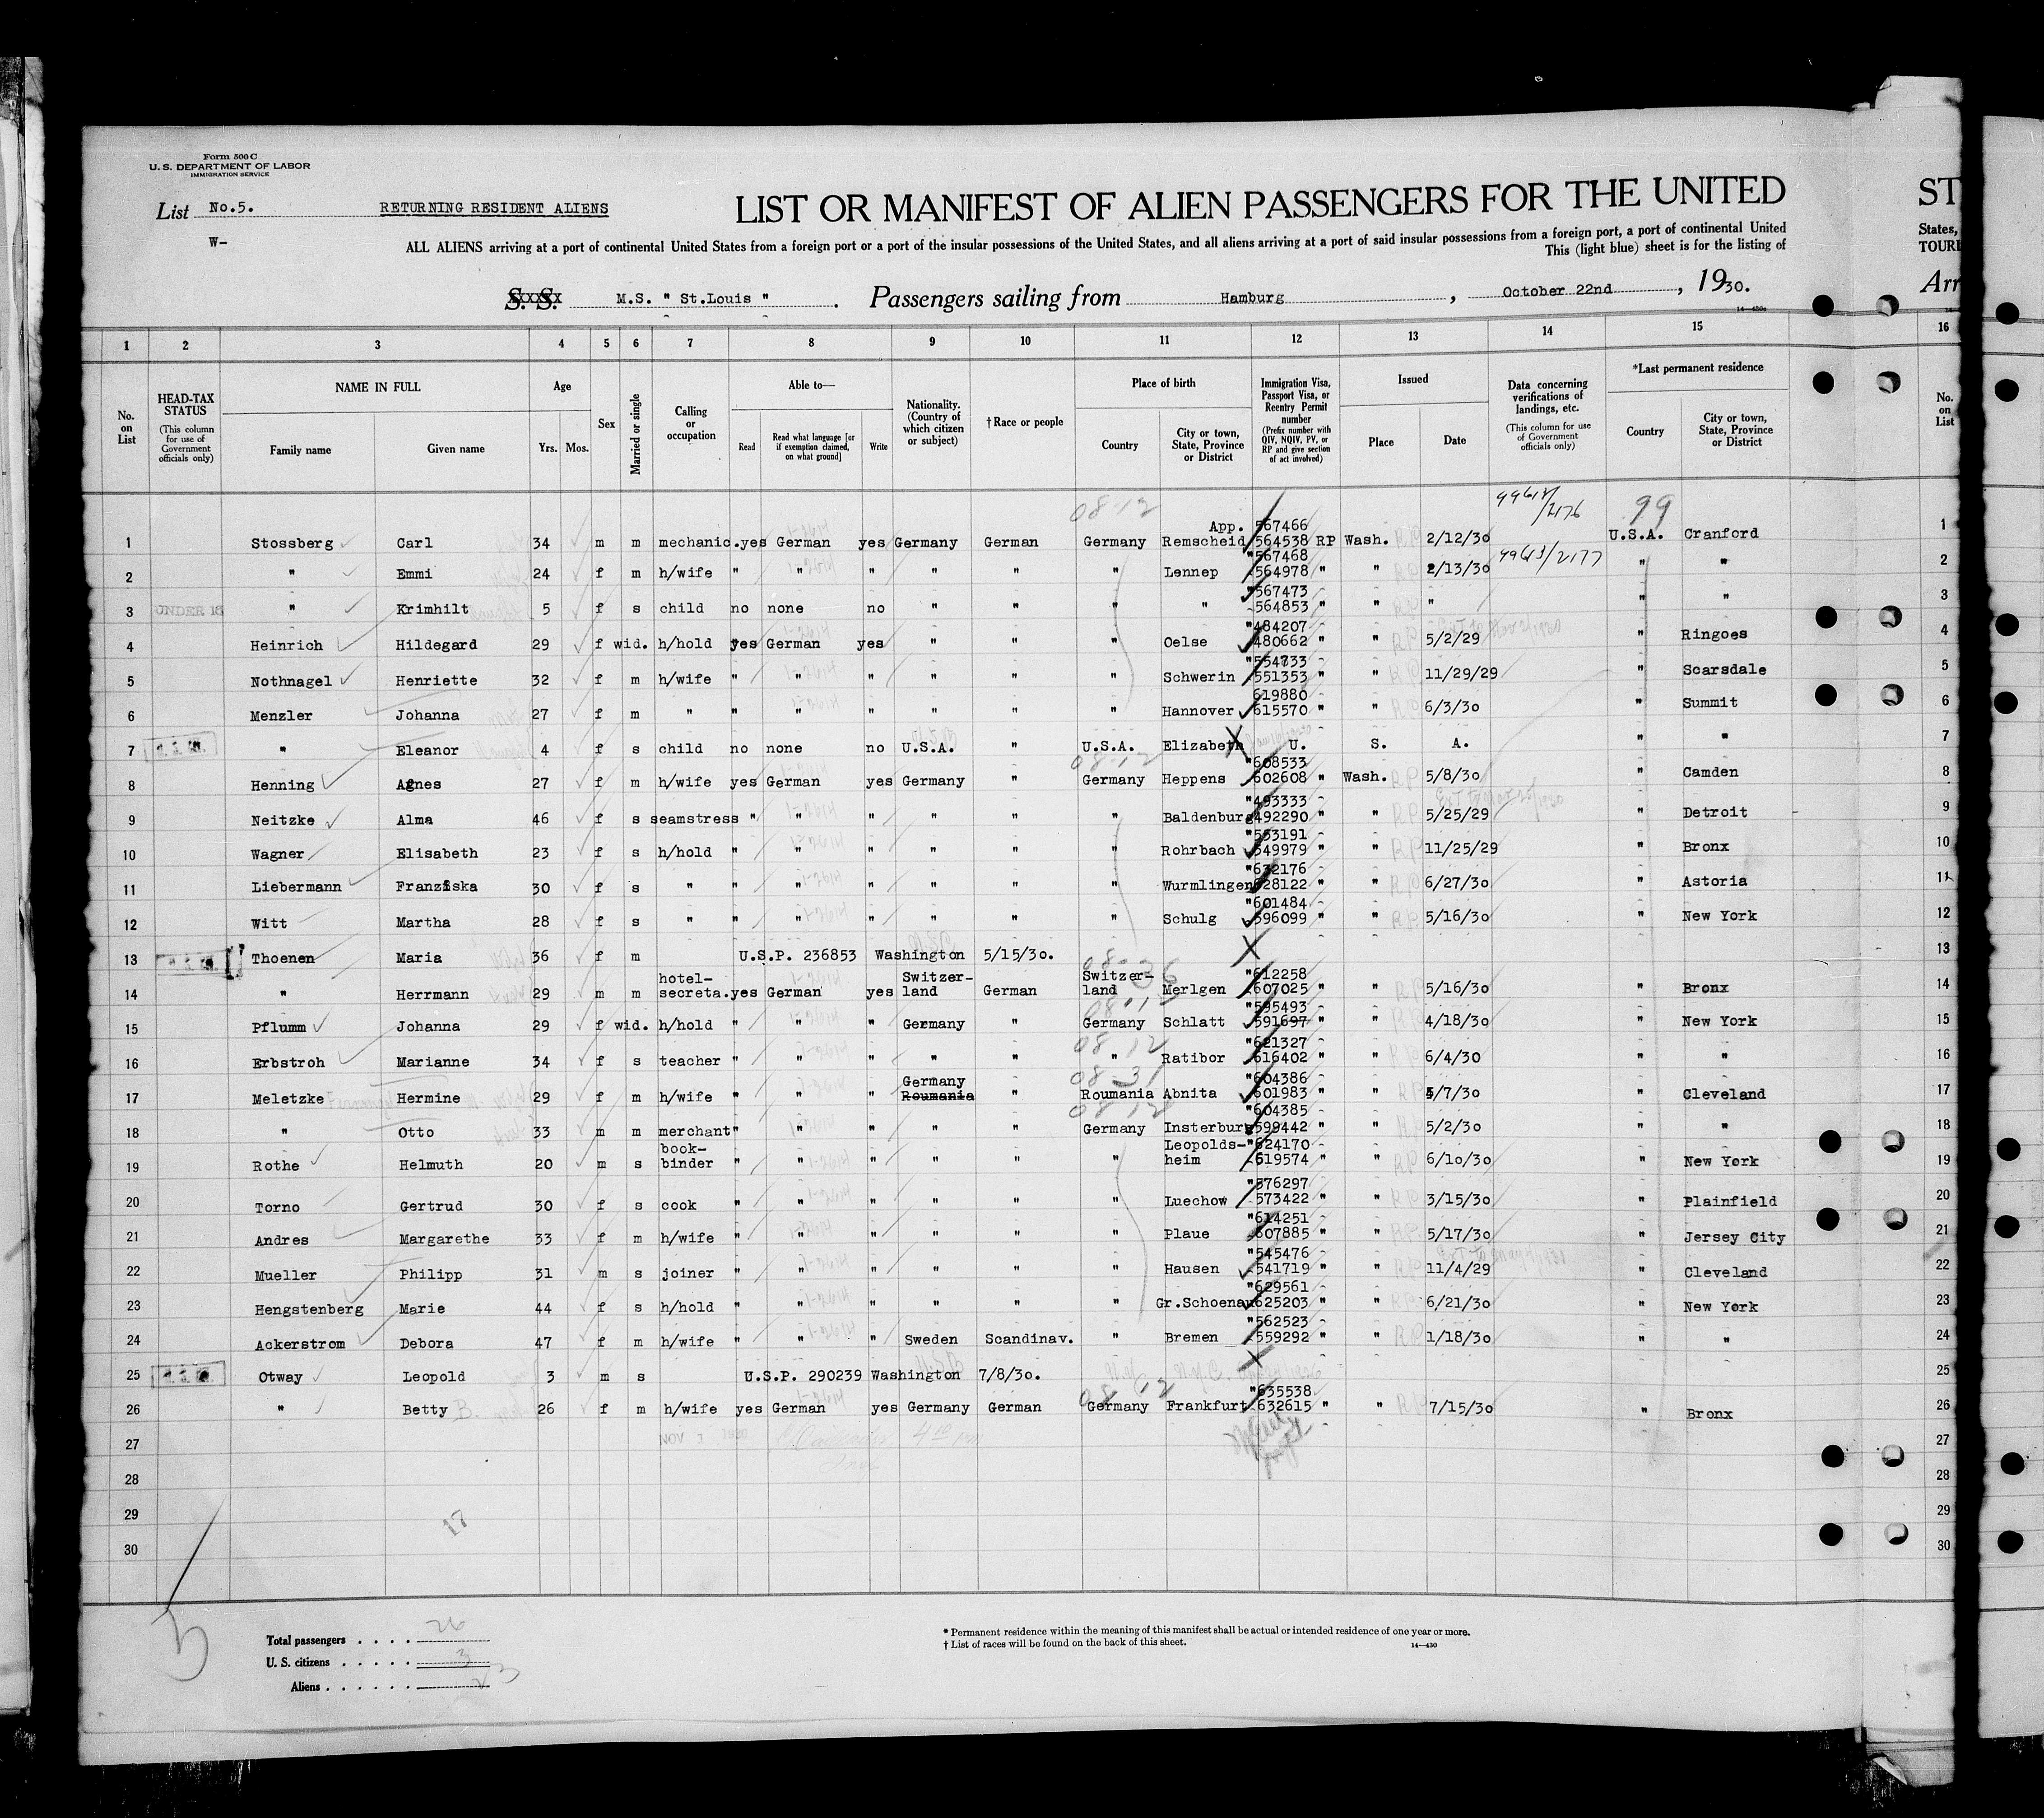 Form 500 C
U. S. DEPARTMENT OF LABOR
IMMIGRATION SERVICE
List No.5. RETURNING RESIDENT ALIENS LIST OR MANIFEST OF ALIEN PASSENGERS FOR THE UNITED ST
W- ALL ALIENS arriving at a port of continental United States from a foreign port or a port of the insular possessions of the United States, and all aliens arriving at a port of said insular possessions from a foreign port, a port of continental United States,
This (light blue) sheet is for the listing of TOURI
S. S. M.S. " St.Louis ". Passengers sailing from Hamburg, October 22nd, 1930. Arr
14—430c
1 2 3 4 5 6 7 8 9 10 11 12 13 14 15 16
No. on List
HEAD-TAX STATUS (This column for use of Government officials only)
NAME IN FULL Family name Given name
Age Yrs. Mos.
Sex
Married or single
Calling or occupation
Able to— Read Read what language [or if exemption claimed, on what ground] Write
Nationality. (Country of which citizen or subject)
†Race or people
Place of birth Country City or town, State, Province or District
Immigration Visa, Passport Visa, or Reentry Permit number (Prefix number with QIV, NQIV, PV, or RP and give section of act involved)
Issued Place Date
Data concerning verifications of landings, etc. (This column for use of Government officials only)
*Last permanent residence Country City or town, State, Province or District
No. on List
08-12 99
App. 567466
1 Stossberg Carl 34 m m mechanic. yes German yes Germany German Germany Remscheid 564538 RP Wash. 2/12/30 U.S.A. Cranford 1
"567468
2 " Emmi 24 f m h/wife " " " " " " Lennep 564978 " " 2/13/30 " " 2
"567473
3 UNDER 16 " Krimhilt 5 f s child no none no " " " " 564853 " " " " " 3
"484207
4 Heinrich Hildegard 29 f wid. h/hold yes German yes " " " Oelse 480662 " " 5/2/29 " Ringoes 4
"554733
5 Nothnagel Henriette 32 f m h/wife " " " " " " Schwerin 551353 " " 11/29/29 " Scarsdale 5
619880
6 Menzler Johanna 27 f m " " " " " " " Hannover 615570 " " 6/3/30 " Summit 6
7 " Eleanor 4 f s child no none no U.S.A. " U.S.A. Elizabeth U. S. A. " " 7
08-12 "608533
8 Henning Agnes 27 f m h/wife yes German yes Germany " Germany Heppens 602608 " Wash. 5/8/30 " Camden 8
"493333
9 Neitzke Alma 46 f s seamstress " " " " " " Baldenburg 492290 " " 5/25/29 " Detroit 9
"553191
10 Wagner Elisabeth 23 f s h/hold " " " " " " Rohrbach 549979 " " 11/25/29 " Bronx 10
"632176
11 Liebermann Franziska 30 f s " " " " " " " Wurmlingen 628122 " " 6/27/30 " Astoria 11
"601484
12 Witt Martha 28 f s " " " " " " " Schulg 596099 " " 5/16/30 " New York 12
13 Thoenen Maria 36 f m U.S.P. 236853 Washington 5/15/30. X 13
hotel- Switzer- Switzer- "612258
14 " Herrmann 29 m m secreta. yes German yes land German land Merlgen 607025 " " 5/16/30 " Bronx 14
08-12 "595493
15 Pflumm Johanna 29 f wid. h/hold " " " Germany " Germany Schlatt 591697 " " 4/18/30 " New York 15
08-12 "621327
16 Erbstroh Marianne 34 f s teacher " " " " " " Ratibor 616402 " " 6/4/30 " " 16
Germany 08-31 "604386
17 Meletzke Hermine 29 f m h/wife " " " Roumania " Roumania Abnita 601983 " " 5/7/30 " Cleveland 17
08-12 "604385
18 " Otto 33 m m merchant " " " " " Germany Insterburg 599442 " " 5/2/30 " " 18
book- Leopolds- "624170
19 Rothe Helmuth 20 m s binder " " " " " " heim 619574 " " 6/10/30 " New York 19
"576297
20 Torno Gertrud 30 f s cook " " " " " " Luechow 573422 " " 3/15/30 " Plainfield 20
"614251
21 Andres Margarethe 33 f m h/wife " " " " " " Plaue 607885 " " 5/17/30 " Jersey City 21
"545476
22 Mueller Philipp 31 m s joiner " " " " " " Hausen 541719 " " 11/4/29 " Cleveland 22
"629561
23 Hengstenberg Marie 44 f s h/hold " " " " " " Gr.Schoenau 625203 " " 6/21/30 " New York 23
"562523
24 Ackerstrom Debora 47 f m h/wife " " " Sweden Scandinav. " Bremen 559292 " " 1/18/30 " " 24
25 Otway Leopold 3 m s U.S.P. 290239 Washington 7/8/30. X 25
08-12 "635538
26 " Betty B. 26 f m h/wife yes German yes Germany German Germany Frankfurt 632615 " " 7/15/30 " Bronx 26
27 NOV 3 1930 27
28 28
29 17 29
30 30
5
Total passengers . . . . 26
U. S. citizens . . . . . 3
Aliens . . . . . . 23
* Permanent residence within the meaning of this manifest shall be actual or intended residence of one year or more.
† List of races will be found on the back of this sheet. 14—430